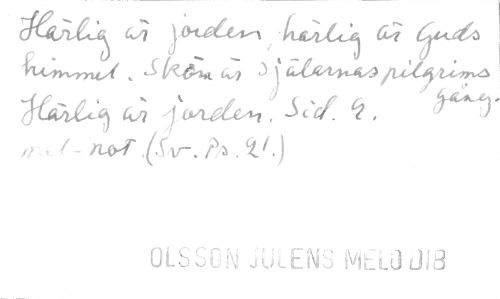 Härlig är jorden, härlig är Guds
himmel. Skön är själarnas pilgrims
gång.
Härlig är jorden. Sid. 9.
mel-not. (Sv. Ps. 21.)
OLSSON JULENS MELODIB